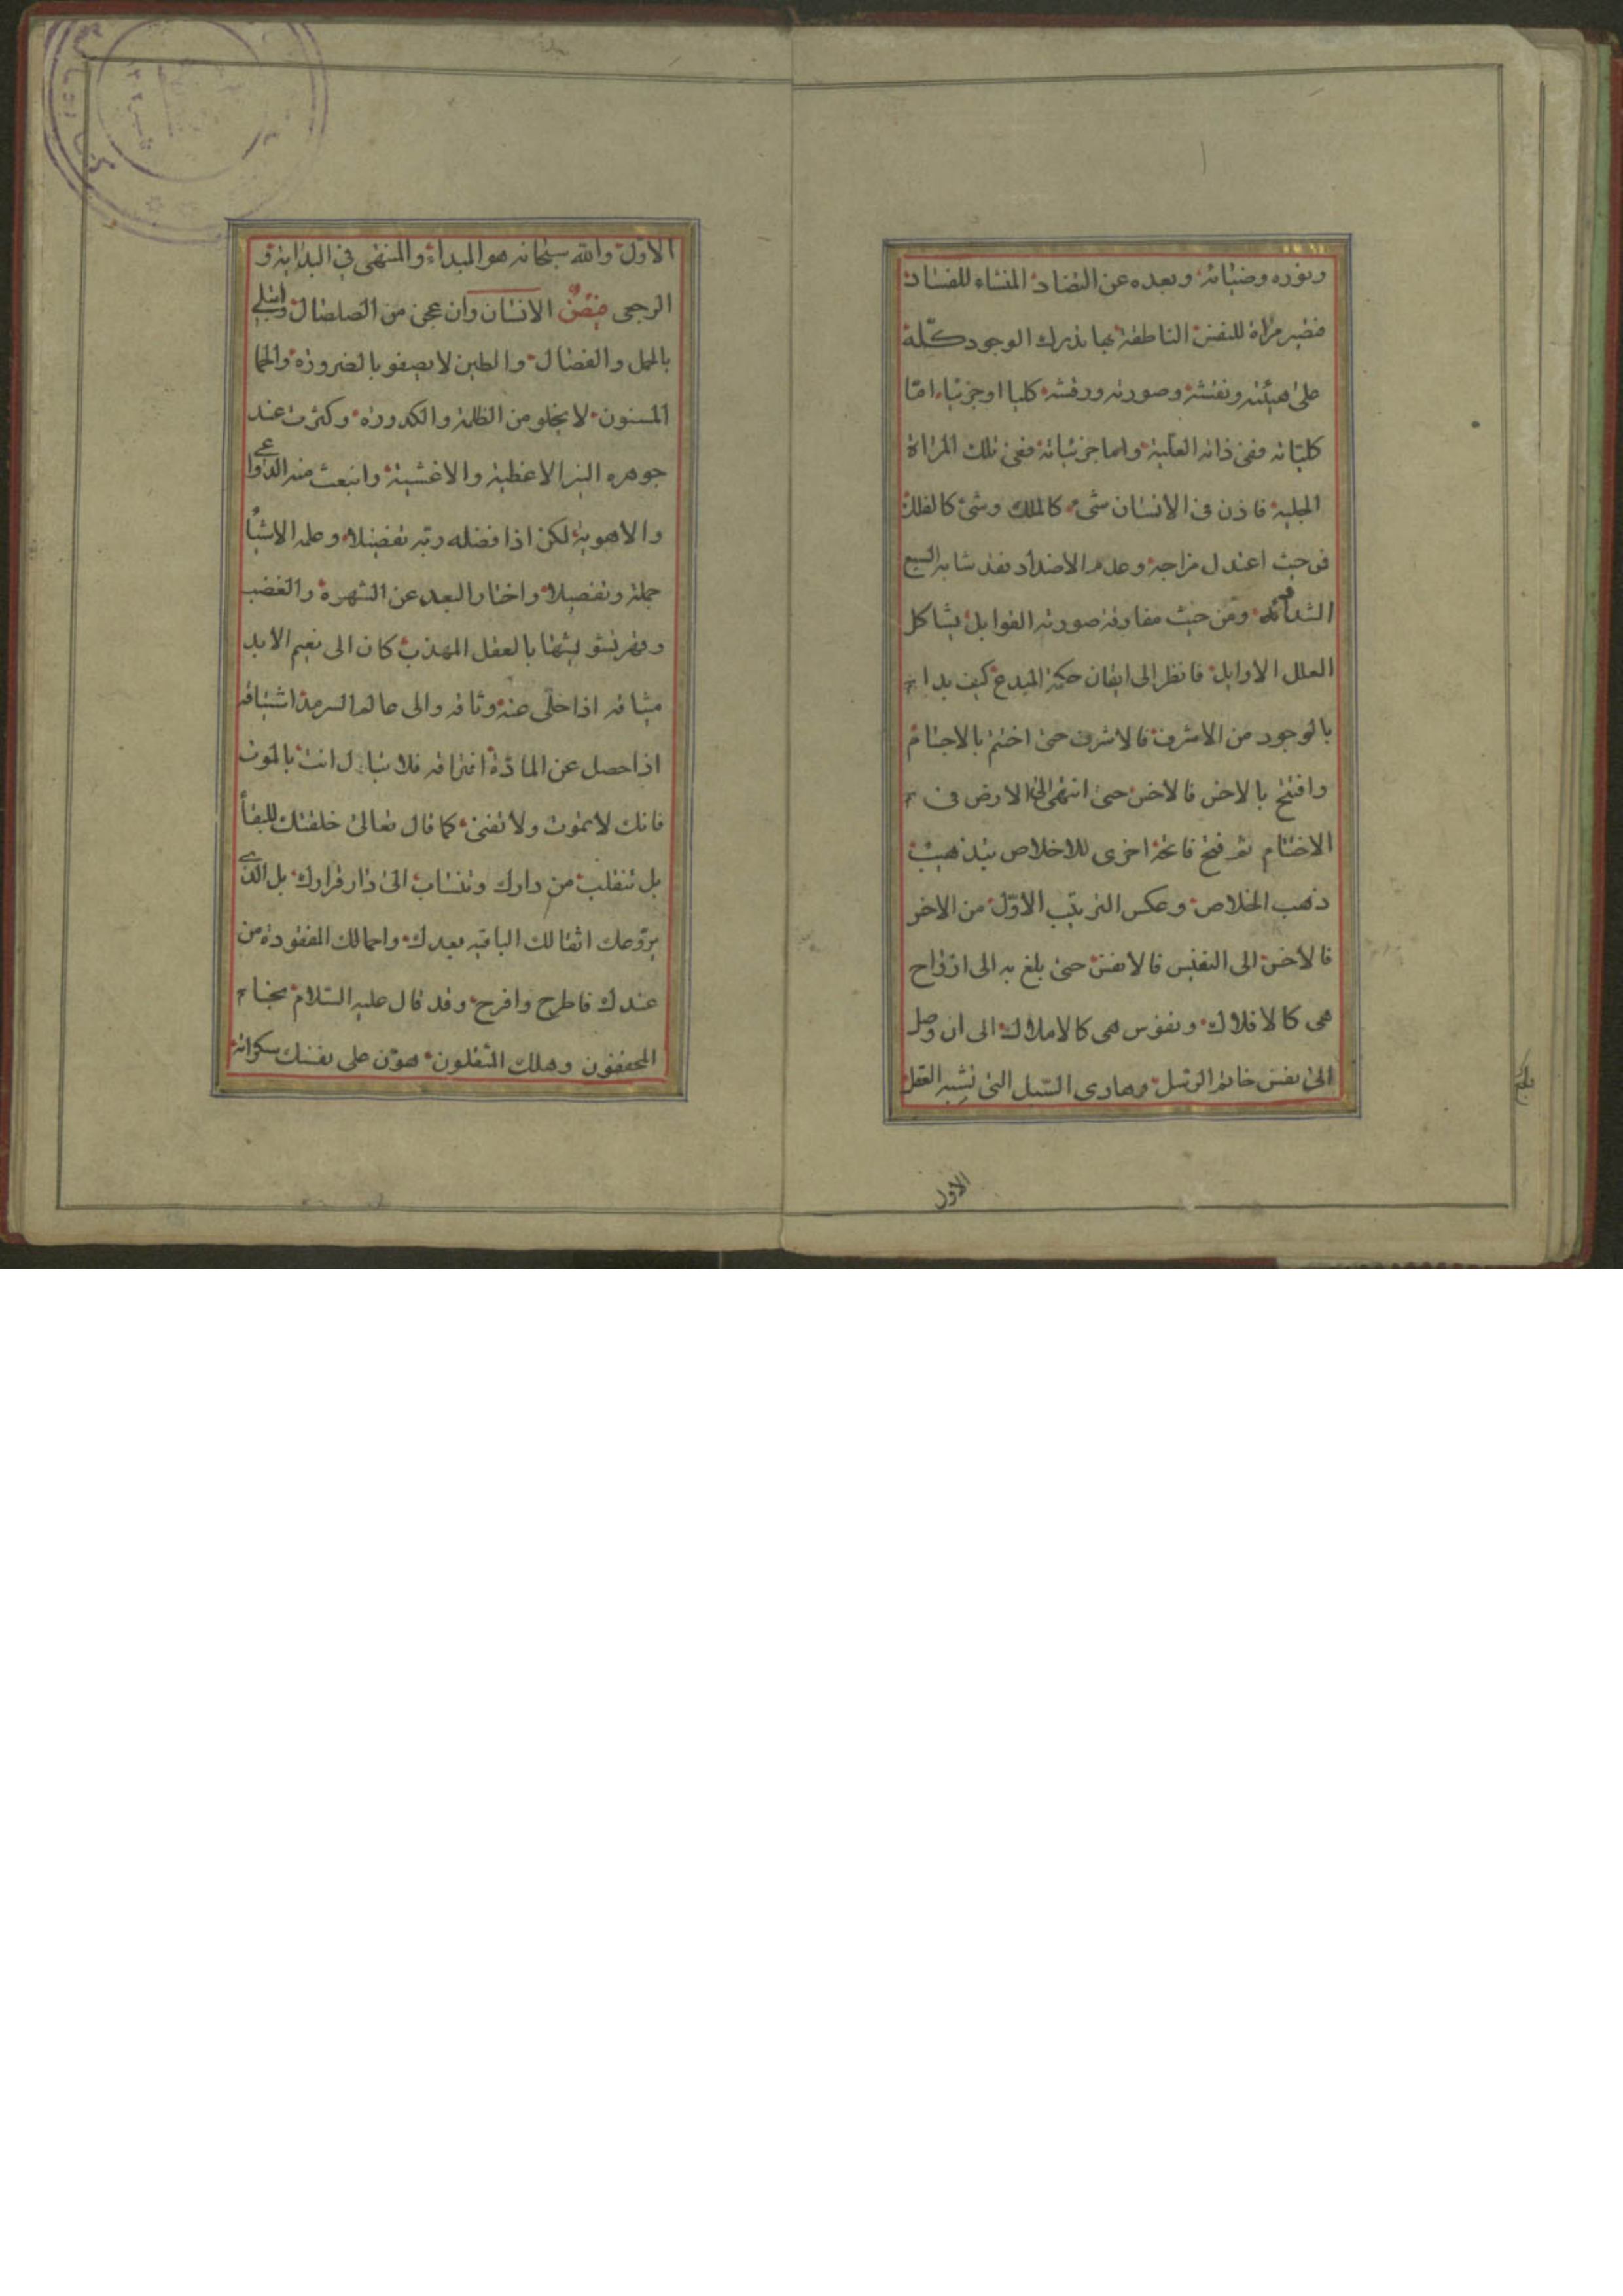 ونوره وضيائه وبعده عن التضاد المنشاء للفساد
فتصير مرآة للنفس الناطقة بها يدرك الوجود كله
على هيئته ونقشه وصورته ورقشه كليا او جزئيا اما
كلياته ففى ذاته العلية واما جزئياته ففى تلك المرآة
الجلية فاذن فى الانسان شئ كالملك وشئ كالفلك
فمن حيث اعتدل مزاجه وعدم الاضداد فقد شابه السبع
الشداد ومن حيث مفارقة صورته القوابل يشاكل
العلل الاوايل فانظر الى اتقان حكمة المبدع كيف بدا
بالوجود من الاشرف فالاشرف حتى اختتم بالاجسام
وافتتح بالاخس فالاخس حتى انتهى الى الارض فى
الاختتام ثم فتح فاتحة اخرى للاخلاص بتذهيب
ذهب الخلاص وعكس الترتيب الاول من الاخر
فالاخس الى النفيس فالانفس حتى بلغ به الى ارواح
هى كالافلاك ونفوس هى كالاملاك الى ان وصل
الى نفس خاتم الرسل وهادى السبل التى تشبه العقل
الاول
الاول والله سبحانه هو المبداء والمنتهى فى البداية و
الرجعى فصّ الانسان وان عجن من الصلصال وابتلى
بالحمل والفصال والطين لا يصفو بالضرورة والحما
المسنون لا يخلو من الظلمة والكدورة وكثرت عند
جوهره النير الاغطية والاغشية وانبعث منه الدواعى
والاهوية لكن اذا فضله ربه تفضيلا وعلمه الاشياء
جملة وتفصيلا واختار البعد عن الشهوة والغضب
وقهر بالعقل المهذب كان الى نعيم الابد
مشاقه اذا خلى عنه وثاقه والى عالم السرمد اشتياقه
اذا حصل عن المادة افتراقه فلا تبال انت بالموت
فانك لا تموت ولا تفنى كما قال تعالى خلقتك للبقاء
بل تنقلب من دارك وتنساب الى دار قرارك بل الذى
يروعك اثقالك الباقيه بعدك واحمالك المفقودة من
عندك فاطرح وافرح وقد قال عليه السلام نجا
المخففون وهلك المثقلون هون على نفسك سكراته